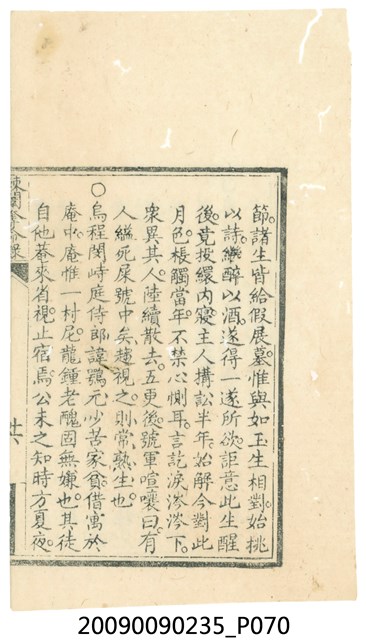 節諸生皆給假展墓惟與如玉生相對始挑
以詩繼醉以酒遂得一遂所欲詎意此生醒
後竟投繯内寢主人搆訟半年始解今對此
月色棖觸當年不禁心惻耳言訖淚涔涔下
衆異其人陸續散去五更後號軍喧嚷曰有
人縊死屎號中矣趨視之則常熟生也
○烏程閔峙庭侍郎諱鶚元少苦家貧借寓於
庵中庵惟一村尼龍鍾老醜固無嫌也其徒
自他菴來省視止宿焉公未之知時方夏夜
棘闈奪命錄
廿
20090090235_P070